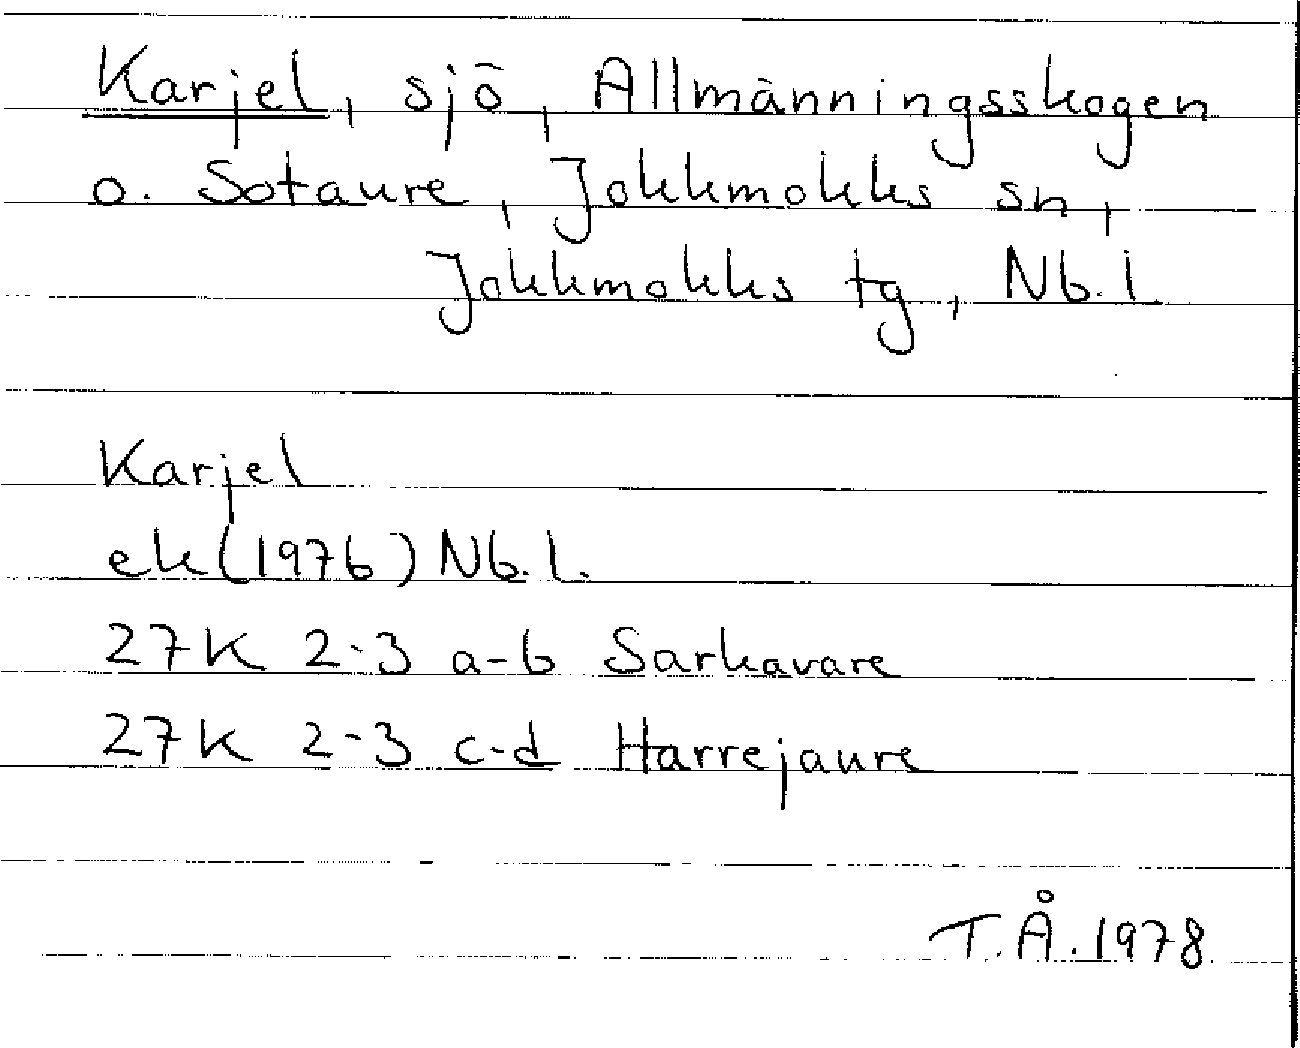 Karjel, sjö, Allmänningsskogen
o. Sotaure, Jokkmokks sn,
Jokkmokks tg, Nb. l
Karjel
ek (1976) Nb. l.
27K 2-3 a-b Sarkavare
27K 2-3 c-d Harrejaure
T.Å. 1978